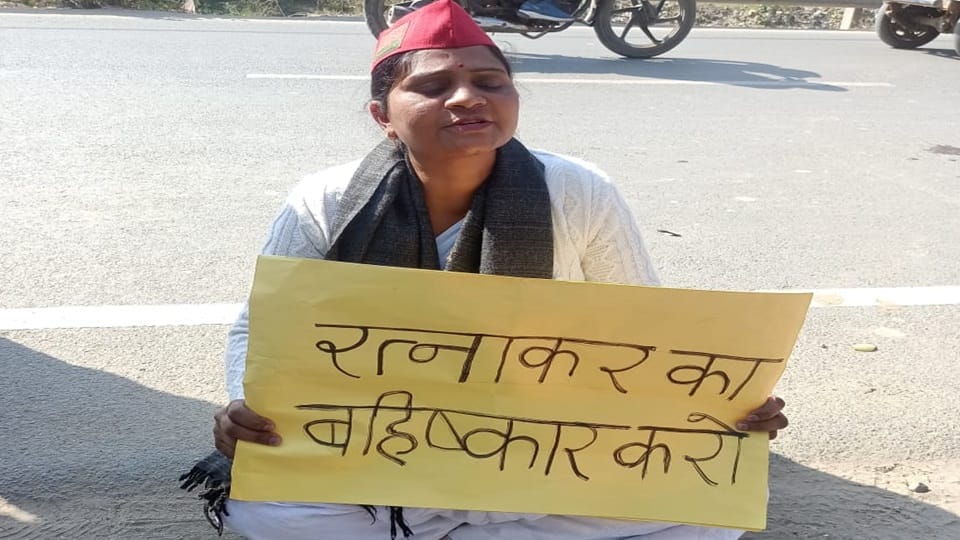 रत्नाकर का
बहिष्कार करो